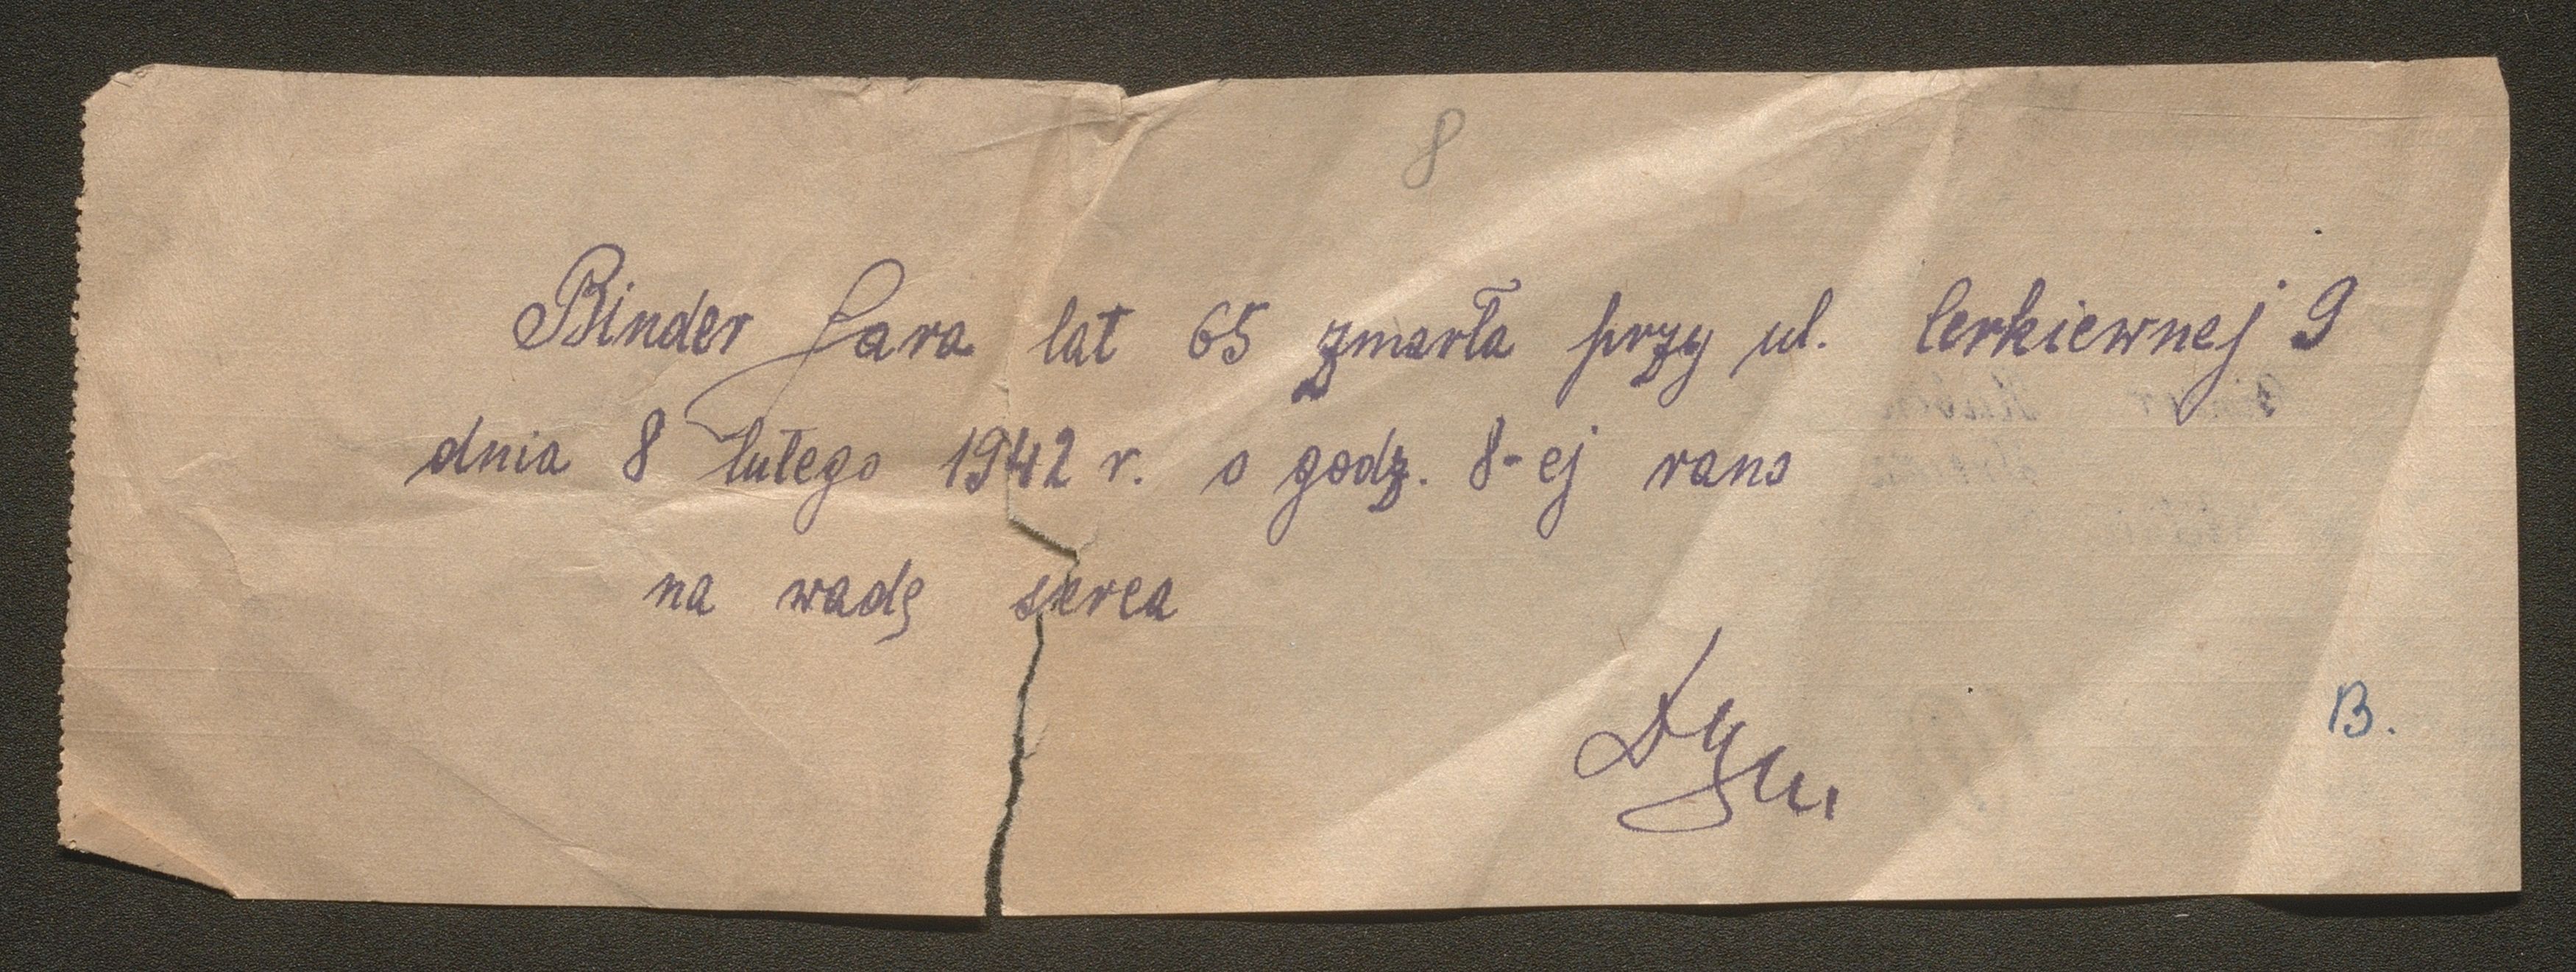 8
Binder Sara lat 65 zmarła przy ul. Cerkiewnej 9
dnia 8 lutego 1942 r. o godz. 8-ej rano
na wadę serca
B.